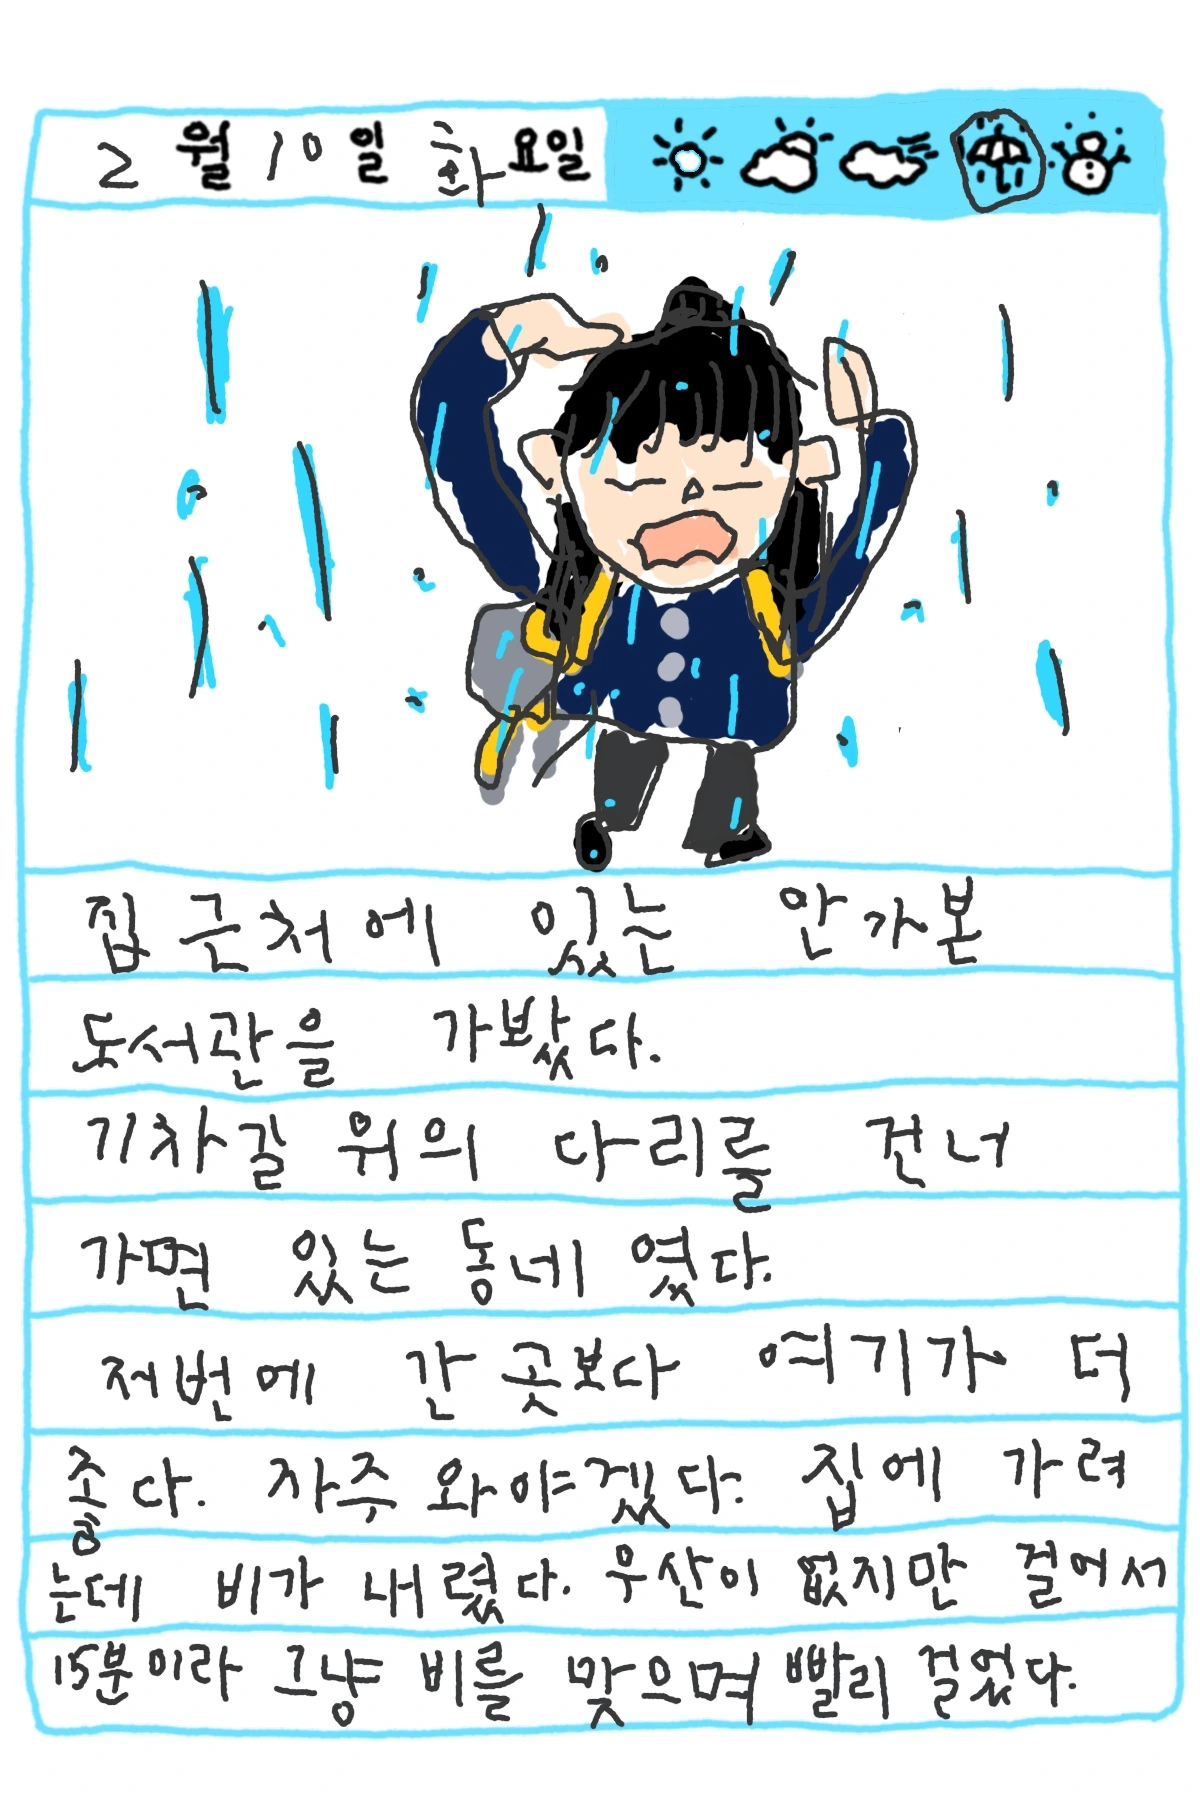 2월 10일 화요일
집 근처에 있는 안가본
도서관을 가봤다.
기차길 위의 다리를 건너
가면 있는 동네 였다.
저번에 간 곳보다 여기가 더
좋다. 자주 와야겠다. 집에 가려
는데 비가 내렸다. 우산이 없지만 걸어서
15분이라 그냥 비를 맞으며 빨리 걸었다.